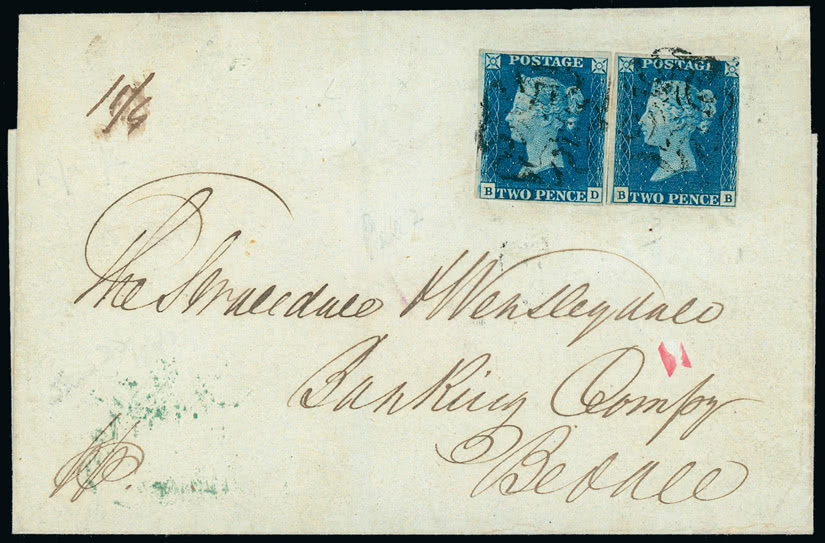 POSTAGE POSTAGE
B TWO PENCE D B TWO PENCE B
The Swaledale & Wensleydale
Banking Compy
Bedale